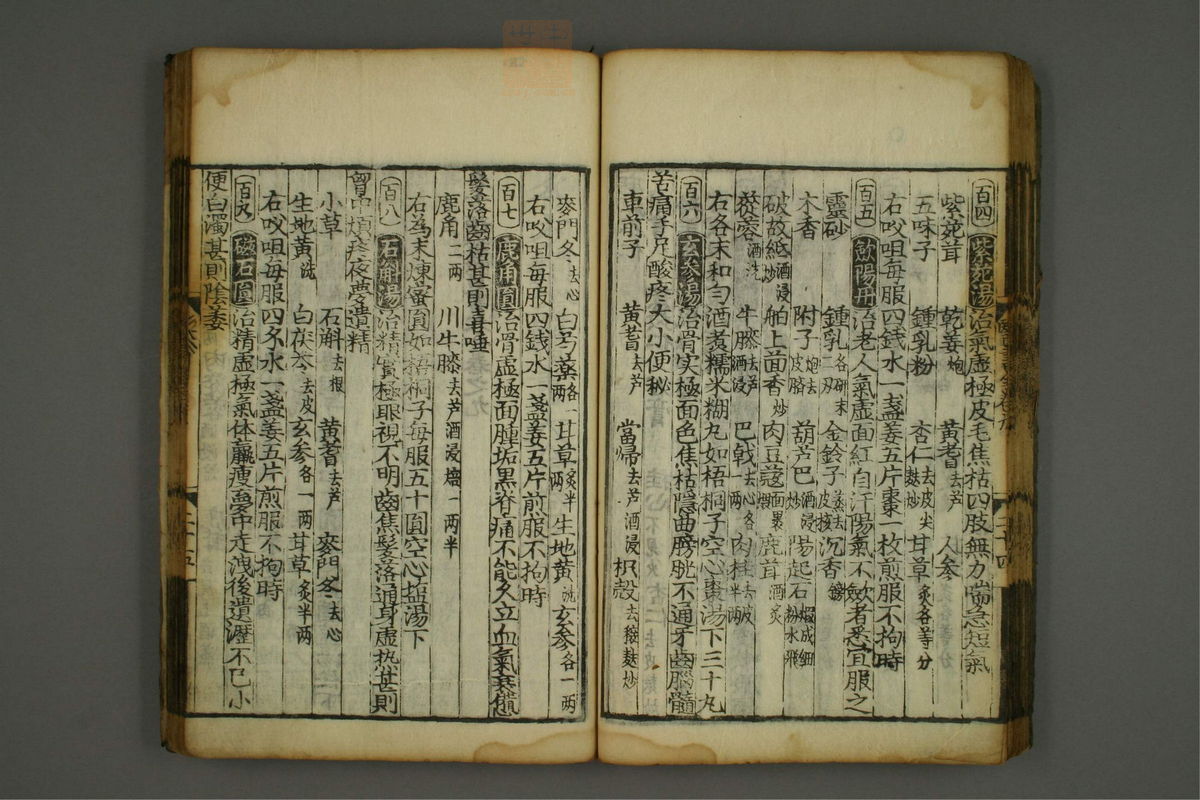 百四 紫菀湯 治氣虛極皮毛焦枯四肢無力喘急短氣
紫菀茸 乾姜炮 黃耆去芦 人參
五味子 鍾乳粉 杏仁去皮尖麩炒 甘草炙各等分
右㕮咀每服四錢水一盞姜五片棗一枚煎服不拘時
百五 歛陽丹 治老人氣虛面紅自汗陽氣不歛者悉宜服之
靈砂 鍾乳各研末二两 金鈴子蒸去皮核 沉香鎊
木香 附子炮去皮臍 葫芦巴酒浸炒 陽起石煆成細粉水飛
破故紙酒浸炒 舶上茴香炒 肉豆蔻面裹煨 鹿茸酒炙
蓯蓉酒洗 牛膝去芦酒浸 巴戟去心各一两 肉桂去皮半两
右各末和勻酒煮糯米糊丸如梧桐子空心棗湯下三十丸
百六 玄參湯 治骨实極面色焦枯隱曲膀胱不通牙齒腦髓
苦痛手足酸疼大小便秘
車前子 黃耆去芦 當歸去芦酒浸 枳殼去穰麸炒
麥門冬去心 白芍藥各一两 甘草炙半两 生地黄洗 玄參各一两
右㕮咀每服四錢水一盞姜五片煎服不拘時
百七 鹿角圓 治骨虛極面腫垢黑脊痛不能久立血氣衰憊
髮落齒枯甚則喜唾
鹿角二两 川牛膝去芦酒浸焙一两半
右為末煉蜜圓如梧桐子每服五十圓空心盐湯下
百八 石斛湯 治精實極眼視不明齒焦髮落通身虛热甚則
胷中煩疼夜夢遺精
小草 石斛去根 黃蓍去芦 麥門冬去心
生地黄洗 白茯苓去皮 玄參各一两 甘草炙半两
右㕮咀每服四錢水一盞姜五片煎服不拘時
百九 磁石圓 治精虛極氣体羸瘦夢中走洩後遺瀝不已小
便白濁甚則陰萎